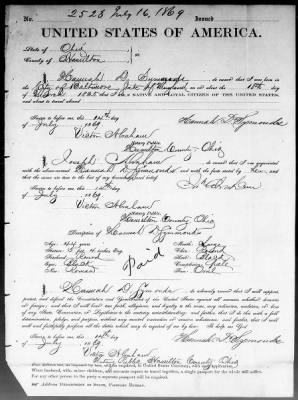 2523 July 16, 1869 Issued
UNITED STATES OF AMERICA.
State of Ohio
County of Hamilton ss.
I, Hannah D. Symonds, do swear that I was born in
the City of Baltimore State of Maryland on or about the day
of 1825 that I am a NATIVE AND LOYAL CITIZEN OF THE UNITED STATES,
and about to travel abroad
Sworn to before me this 14th day
of July 1869
Hannah D. Symonds
Victor Abraham
Notary Public.
Hamilton County, Ohio
I, Joseph Abraham do swear that I am acquainted
with the above-named Hannah D. Symonds and with the facts stated by her, and
that the same are true to the best of my knowledge and belief.
Sworn to before me this 14th day
of July 1869
Victor Abraham
Notary Public.
Hamilton County, Ohio
Description of Hannah D. Symonds
Age: 44 years
Mouth: Large
Stature: 5 ft 4 inches Eng.
Chin: Round
Forehead: Round
Hair: Black
Eyes: Black
Complexion:
Nose: Roman
Face: Oval
Paid
I, Hannah D. Symonds do solemnly swear that I will support,
protect, and defend the Constitution and Government of the United States against all enemies, whether domestic
or foreign; and that I will bear true faith, allegiance, and loyalty to the same, any ordinance, resolution, or law
of any State, Convention, or Legislature to the contrary notwithstanding; and further, that I do this with a full
determination, pledge, and purpose, without any mental reservation or evasion whatsoever; and further, that I will
well and faithfully perform all the duties which may be required of me by law: So help me God.
Hannah D. Symonds
Sworn to before me this 14th day
of July 1869
Victor Abraham
Notary Public, Hamilton County Ohio
When husband, wife, minor children, and servants expect to travel together, a single passport for the whole will suffice.
For any other person in the party a separate passport will be required.
ADDRESS DEPARTMENT OF STATE, PASSPORT BUREAU.